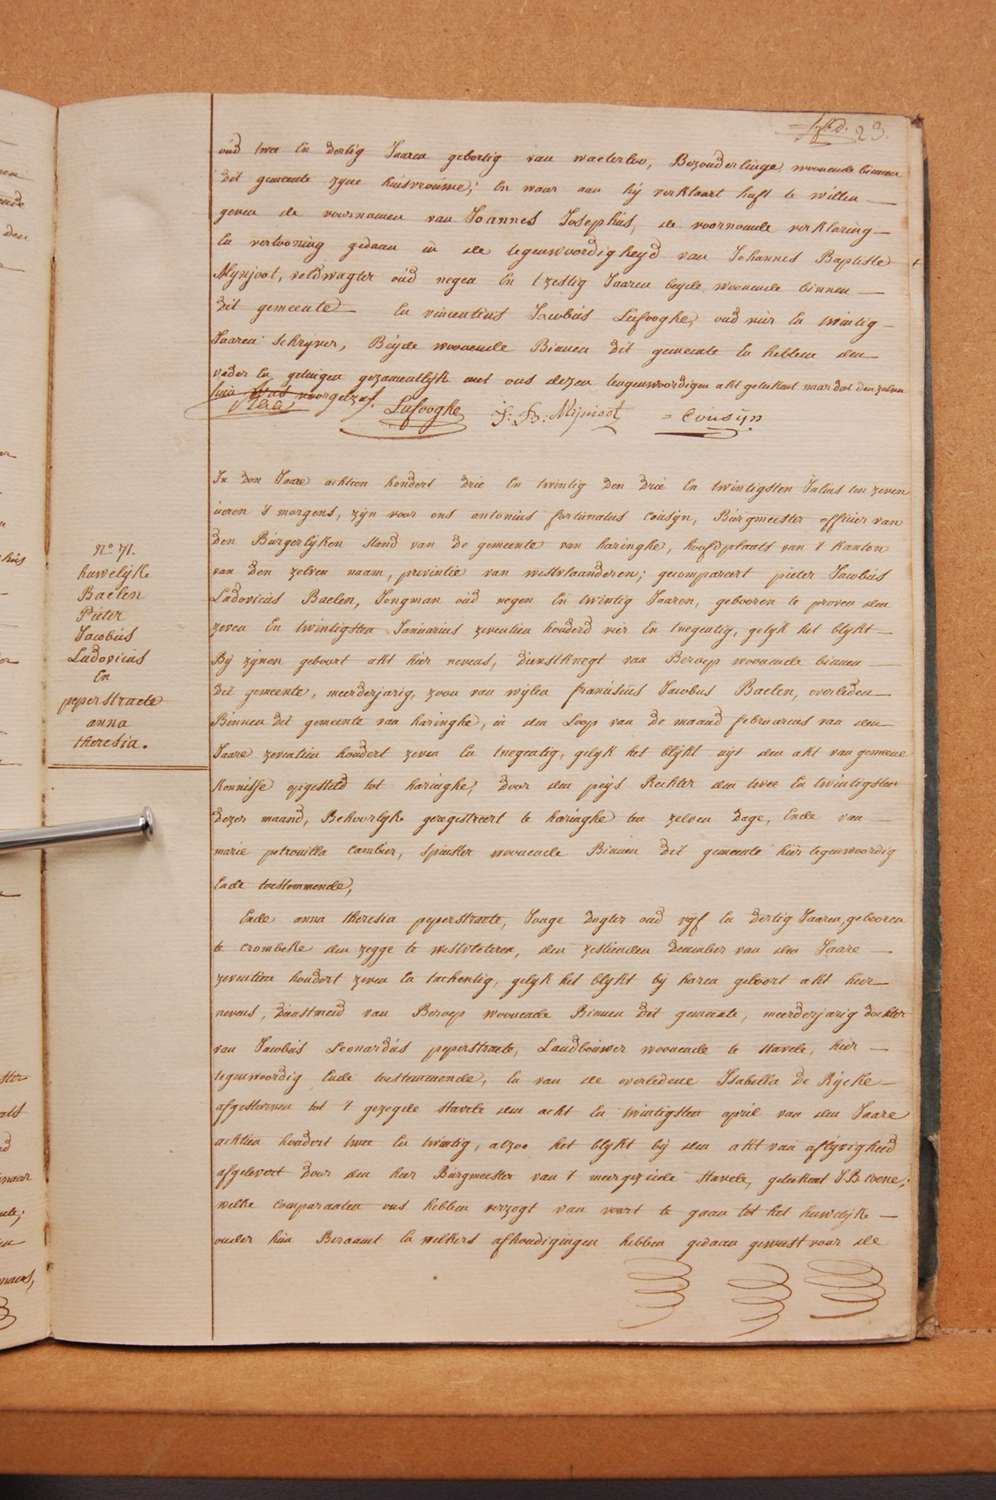 23.
oud twee en dertig Jaaren gebortig van waeterloo, Bezonderlinge, woonende binnen
dit gemeente zyne huisvrouwe; en waar aan hij verklaart heeft te willen
geven de voornamen van Joannes Josephus, de voornoemde verklaring
en vertooning gedaen in de tegenwoordigheyd van Johannes Baptiste
Mijnjoot, veldwagter oud negen en tzestig Jaaren beyde woonende binnen
dit gemeente en vincentius Jacobus Lafooghe, oud vier en twintig
Jaaren Schryver, Beyde woonende Binnen dit gemeente en hebben den
vader en getuigen gezamentlyk met ons dezen tengenwoordigen akt geteekent naar dat den zelven
voorgelezen
Lafooghe J: B: Mijnioot Cousijn
No 71.
huwelyk
Baelen
Pieter
Jacobus
Ludovicus
En
peperstraete
anna
theresia.
In den Jaare achtien hondert drie en twintig den drie en twintigsten Julius ten zeven
ueren 't morgens, zijn voor ons antonius fortunatus Cousijn, Burgmeester officier van
den Burgerlyken stand van de gemeente van haringhe, hoofdplaats van 't kanton
van den zelven naam, provintie van westvlaanderen; gecompareert pieter Jacobus
Ludovicus Baelen, Jongman oud negen en twintig Jaaren, gebooren te proven den
zeven en twintigsten Januarius zeventien honderd vier en tnegentig, gelyk het blijkt
Bij zijnen geboort akt hier nevens, dienstknegt van Beroep woonende binnen
dit gemeente, meerderjarig, zoon van wijlen fransiscus Jacobus Baelen, overleden
Binnen dit gemeente van haringhe, in den loop van de maand februarius van den
Jaare zeventien hondert zeven en tnegentig, gelijk het blijkt uijt den akt van gemeene
Kennisse opgesteld tot haringhe, door den peijs Rechter den twee en twintigsten
dezer maand, Behoorlyk geregistreert te haringhe ten zelven dage, ende van
marie petronilla Cambier, spinster woonende Binnen dit gemeente hier tegenwoordig
ende toestemmende,
Ende anna theresia peperstraete, Jonge dogter oud vijf en dertig Jaaren, gebooren
te crombeke den zegge te westvleteren, den zestienden december van den Jaare
zeventien hondert zeven en tachentig, gelyk het blykt bij haren geboort akt hier
nevens, dienstmeid van Beroep woonende Binnen dit gemeente, meerderjarig dochter
van Jacobus Leonardus peperstraete, Landbouwer woonende te stavele, hier
tegenwoordig ende toestemmende, en van de overledene Isabella De Rijcke
afgestorven tot 't gezegde stavele den acht en twintigsten april van den Jaare
achtien hondert twee en twintig, alzoo het blykt bij den akt van aflyvigheid
afgelevert door den heer Burgmeester van 't meergezeide stavele, geteekent J B Coene;
welke comparanten ons hebben verzogt van voort te gaan tot het huwelyk
onder hun Beraamt en welkers afkondigingen hebben gedaan geweest voor de